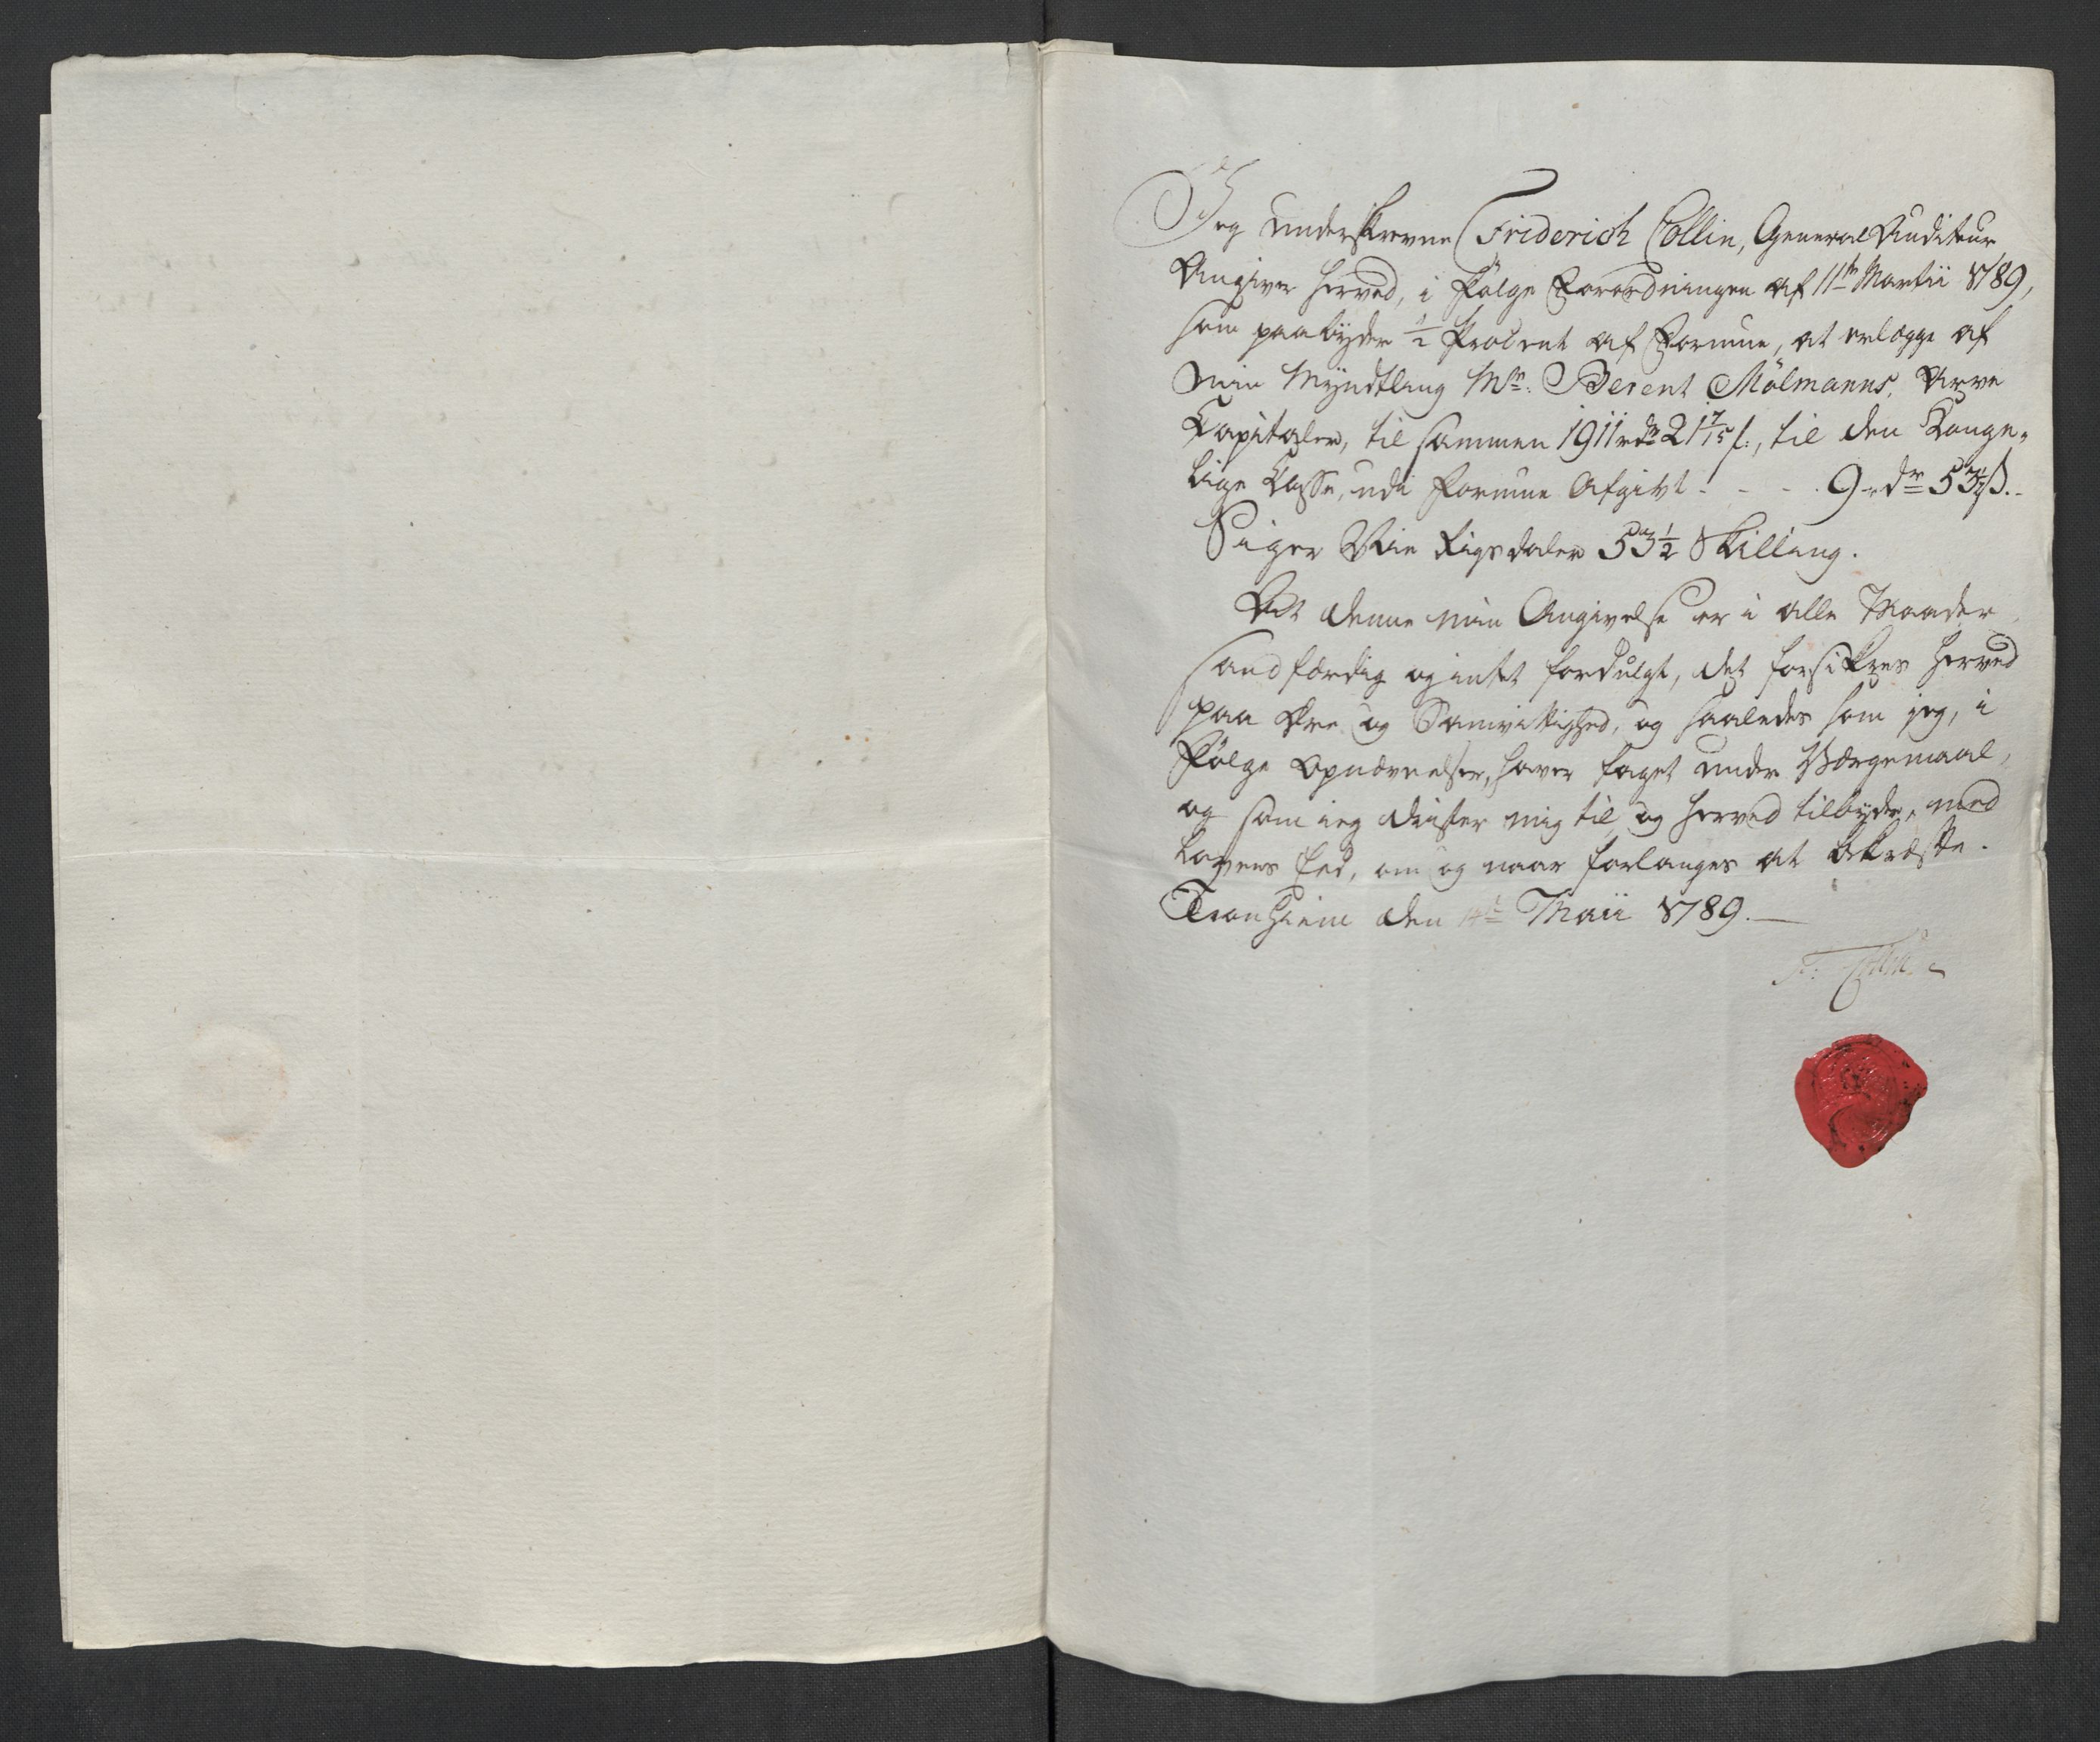 Jeg underskrevne Friderich Collin, General Auditeur
Angiver herved, i Følge Forordningen af 11te Martii 1789,
som paabyder 1/2 Procent af Formue, at erlegge af
Min Myndtling Mr: Berent Mølmanns, Arve
Capitaler, til sammen 1911 rdr 21 7/15 s:, til den Konge-
lige Casse, udi Formue Afgivt - - - 9 rdr 53 1/2 s.
Siger Nie Rigsdaler 53 1/2 Skilling.
At denne min Angivelse er i alle Maader
sandfærdig og intet fordulgt, det forsikres herved
paa Ære og Samvittighed, og saaledes som jeg, i
Følge Opnævnelser, haver taget under Værgemaal,
og som ieg drister mig til og herved tilbyder, med
Lovens Eed, om og naar forlanges at bekræfte.
Tronhiem den 14de Maii 1789.
F: Collin